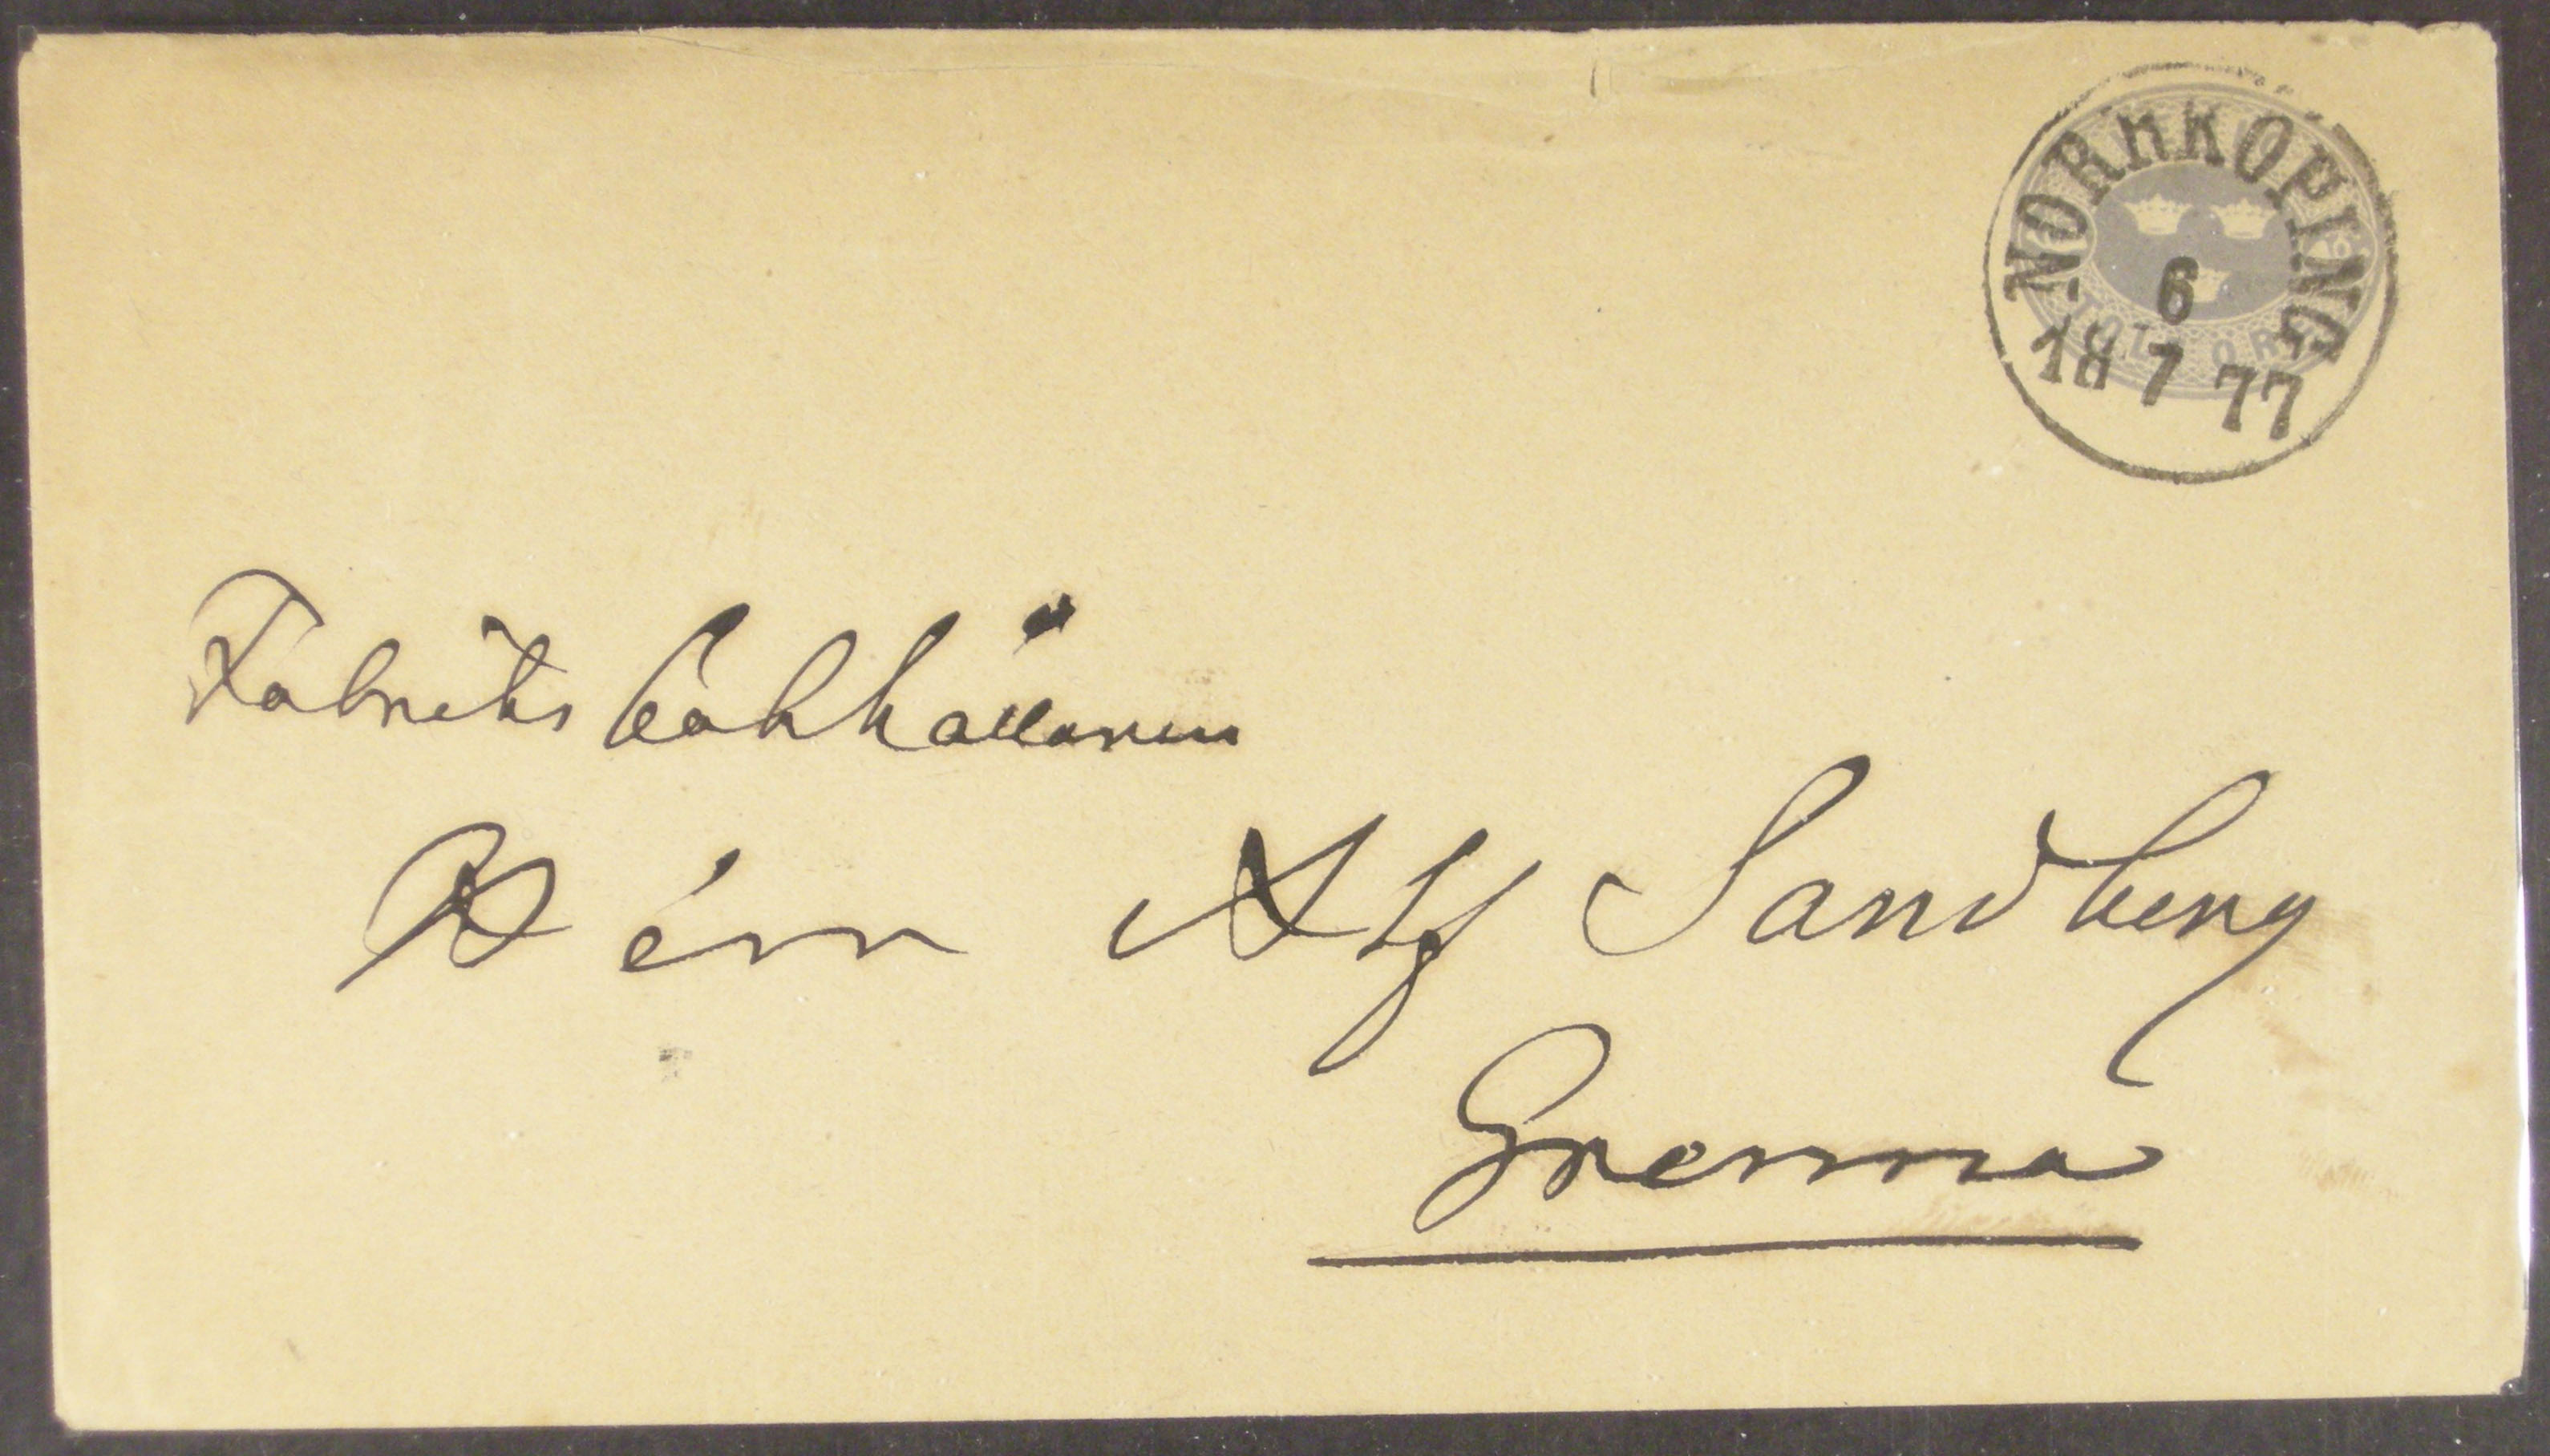 NORRKÖPING
6
18 7 77
TOLF ÖRE
Fabriksbokhållaren
Herr Alf Sandberg
Grenna